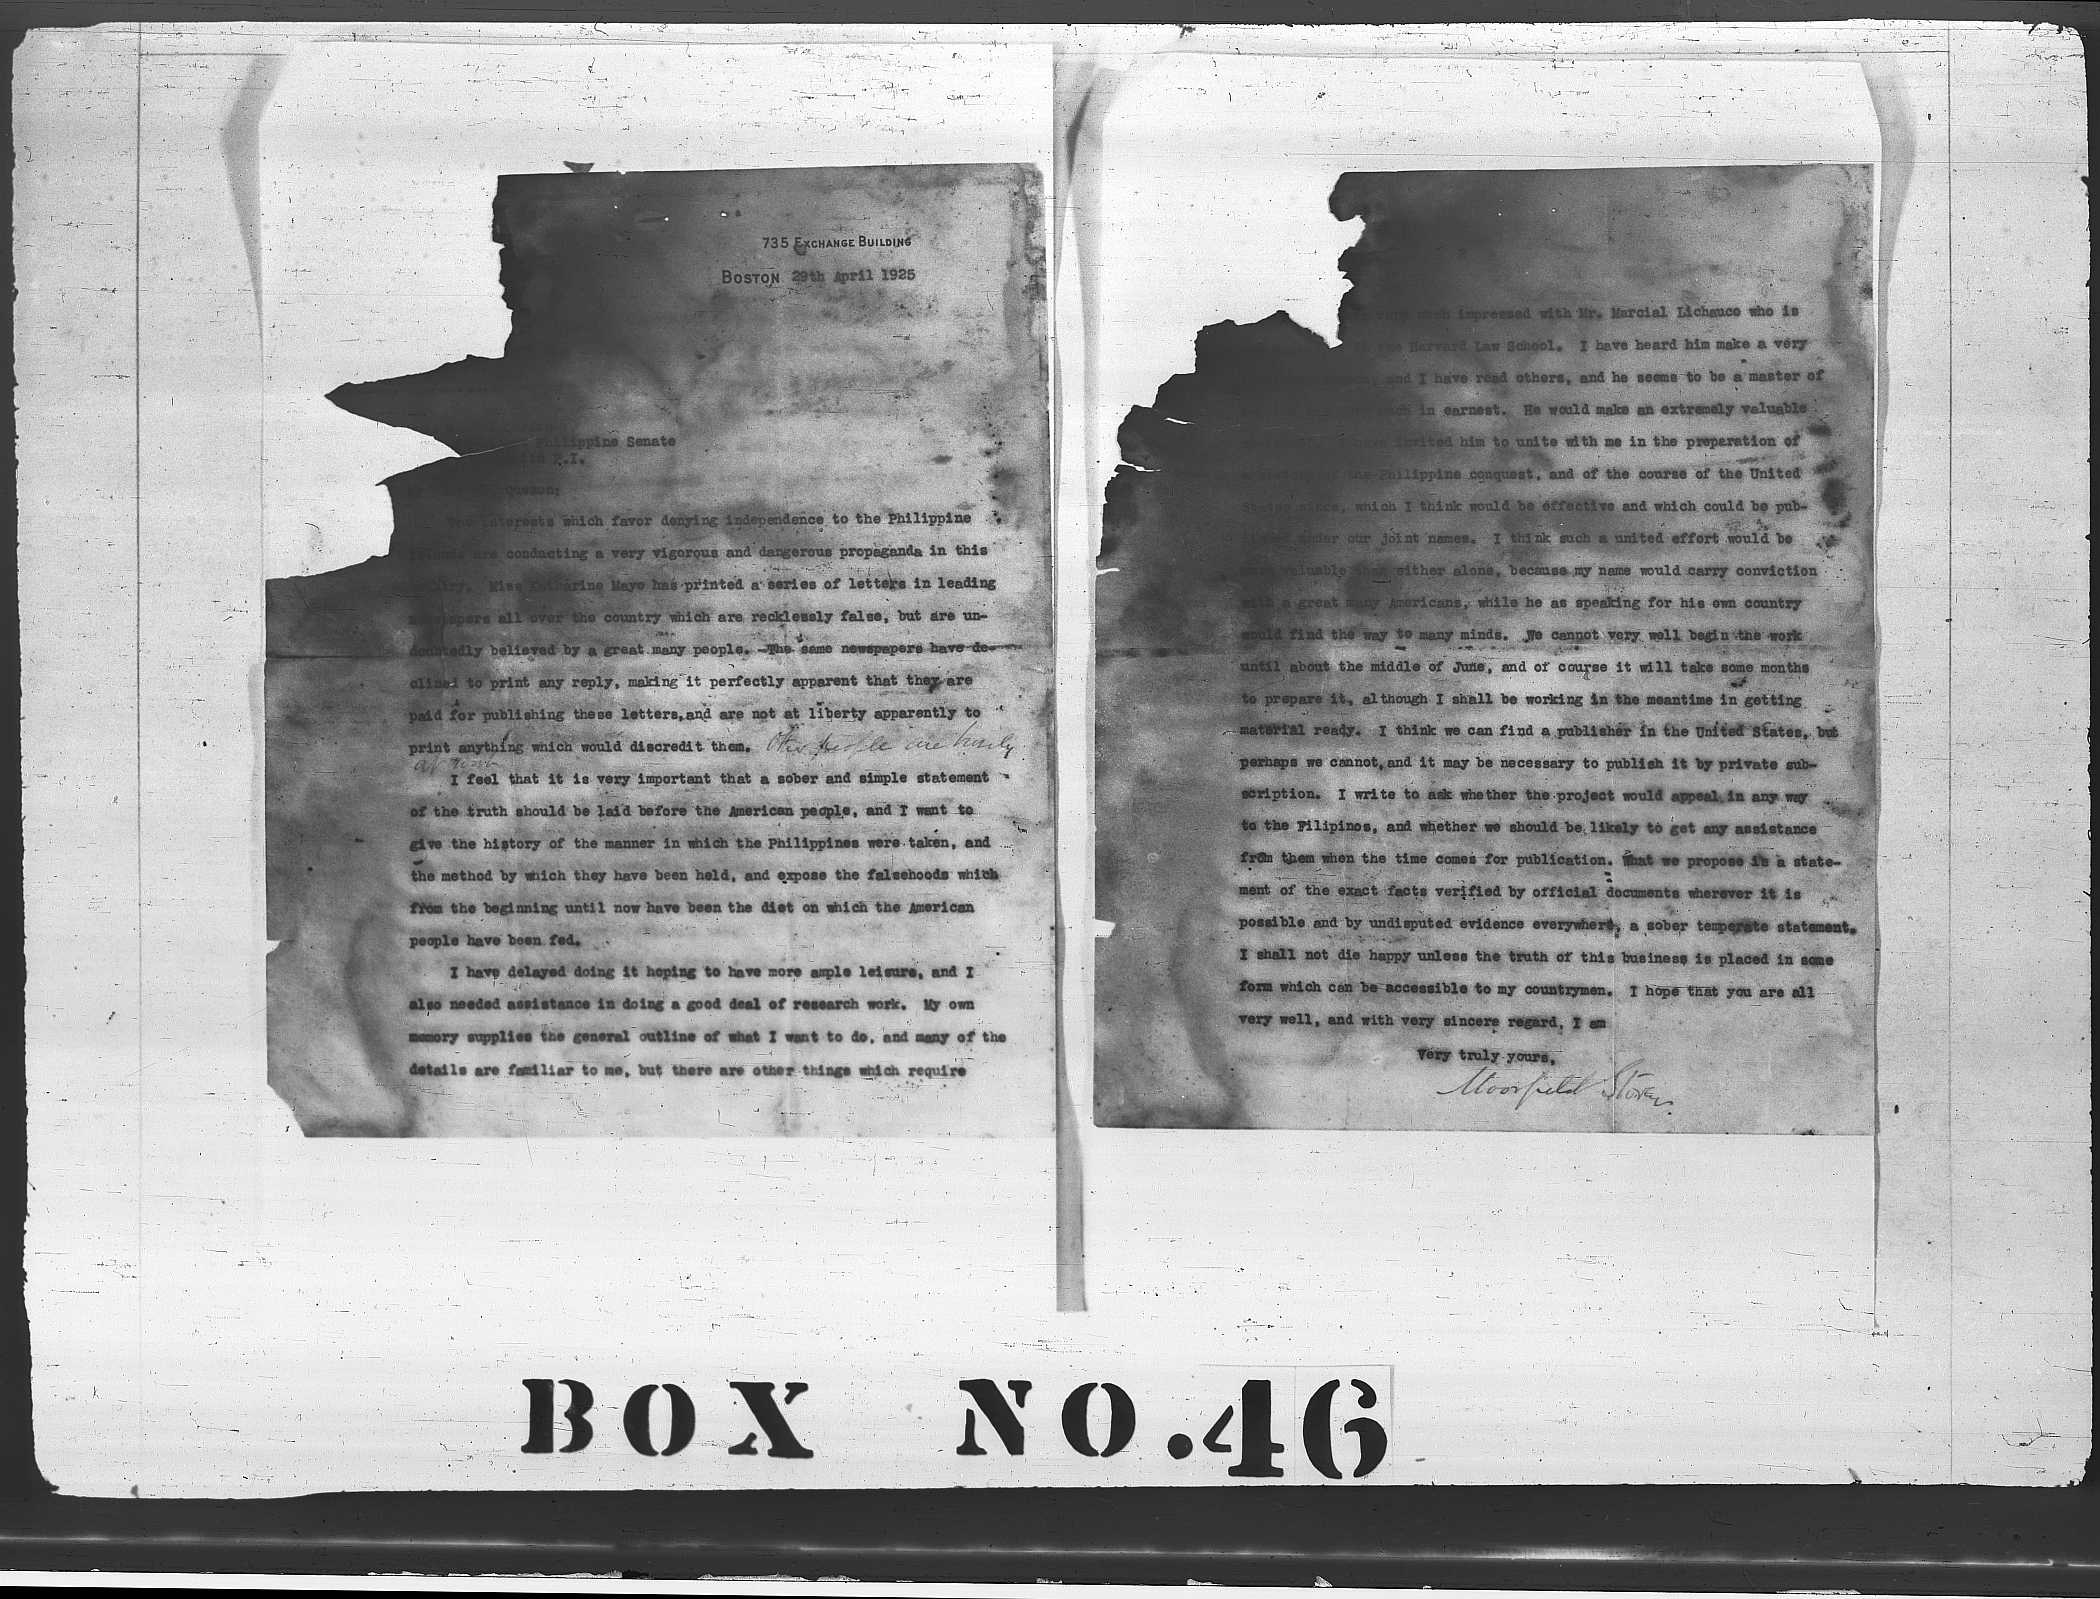 735 EXCHANGE BUILDING
BOSTON 29th April 1925
Philippine Senate
P.I.
Quezon:
The interests which favor denying independence to the Philippine
are conducting a very vigorous and dangerous propaganda in this
Miss Katharine Mayo has printed a series of letters in leading
all over the country which are recklessly false, but are un-
doubtedly believed by a great many people. The same newspapers have de-
clined to print any reply, making it perfectly apparent that they are
paid for publishing these letters, and are not at liberty apparently to
print anything which would discredit them. Other people are busily
at work
I feel that it is very important that a sober and simple statement
of the truth should be laid before the American people, and I want to
give the history of the manner in which the Philippines were taken, and
the method by which they have been held, and expose the falsehoods which
from the beginning until now have been the diet on which the American
people have been fed.
I have delayed doing it hoping to have more ample leisure, and I
also needed assistance in doing a good deal of research work. My own
memory supplies the general outline of what I want to do, and many of the
details are familiar to me, but there are other things which require
very much impressed with Mr. Marcial Lichauco who is
the Harvard Law School. I have heard him make a very
and I have read others, and he seems to be a master of
in earnest. He would make an extremely valuable
invited him to unite with me in the preparation of
the Philippine conquest, and of the course of the United
States since, which I think would be effective and which could be pub-
under our joint names. I think such a united effort would be
more valuable than either alone, because my name would carry conviction
with a great many Americans, while he as speaking for his own country
would find the way to many minds. We cannot very well begin the work
until about the middle of June, and of course it will take some months
to prepare it, although I shall be working in the meantime in getting
material ready. I think we can find a publisher in the United States, but
perhaps we cannot, and it may be necessary to publish it by private sub-
scription. I write to ask whether the project would appeal in any way
to the Filipinos, and whether we should be likely to get any assistance
from them when the time comes for publication. What we propose is a state-
ment of the exact facts verified by official documents wherever it is
possible and by undisputed evidence everywhere, a sober temperate statement.
I shall not die happy unless the truth of this business is placed in some
form which can be accessible to my countrymen. I hope that you are all
very well, and with very sincere regard, I am
Very truly yours,
Moorfield Storey.
BOX NO.46